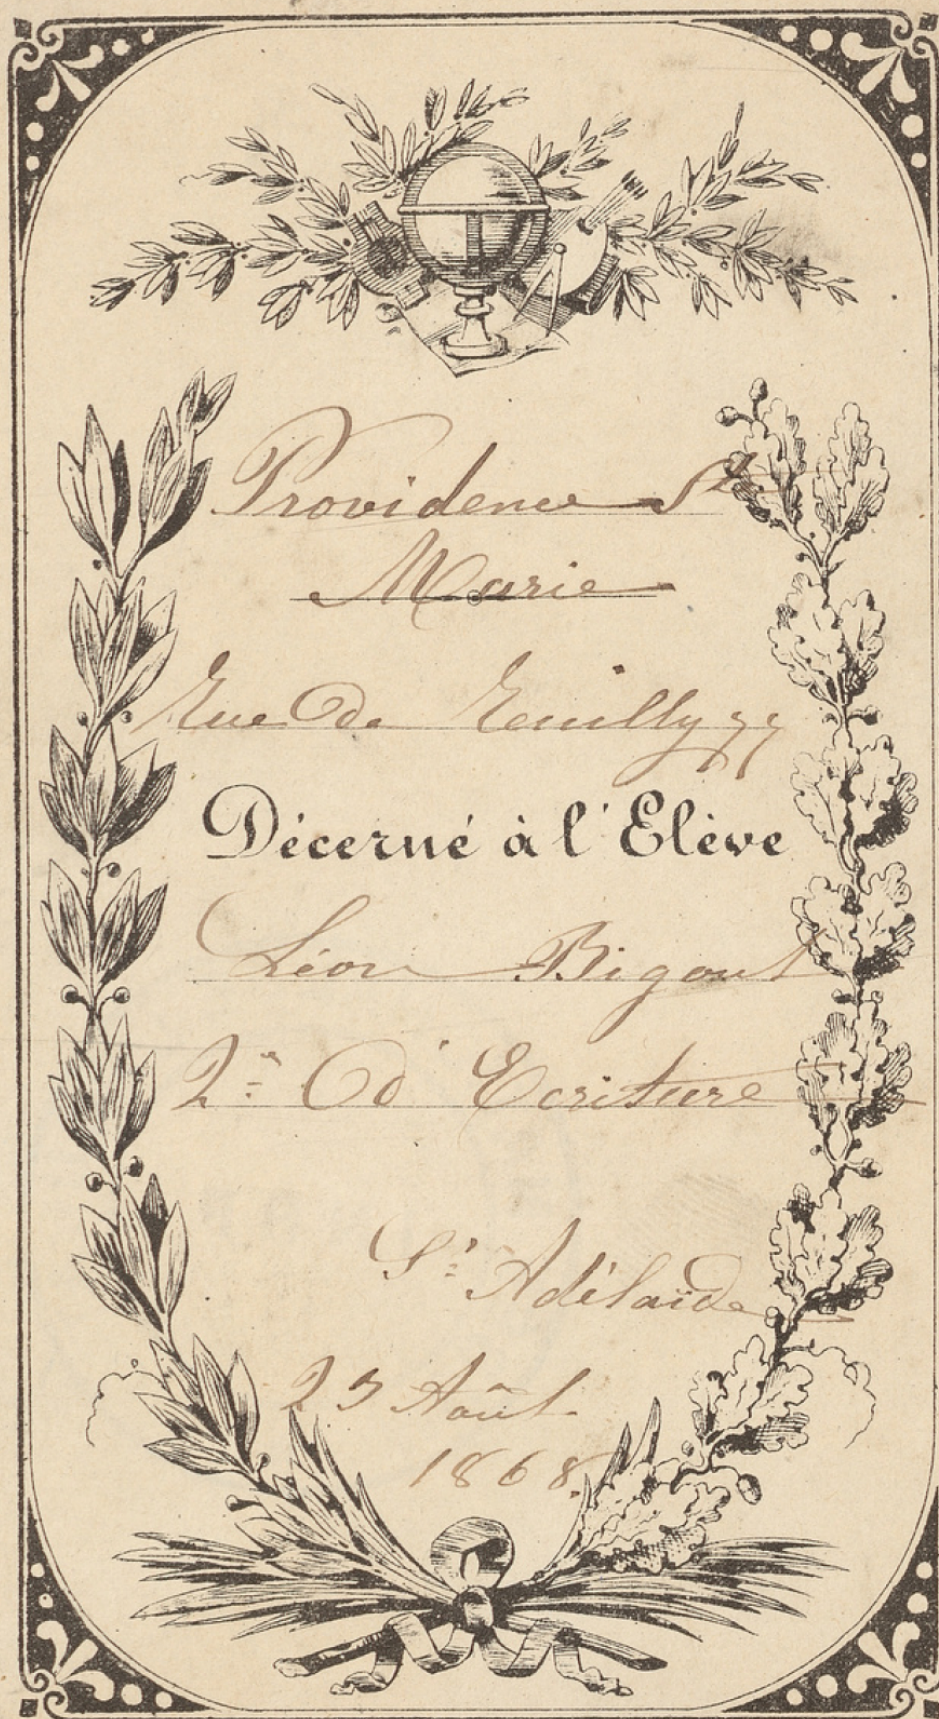 Providence Ste
Marie
Rue de Reuilly 77
Décerné à l'Elève
Léon Bigout
2e d'Ecriture
Sr Adélaïde
23 Août
1868.